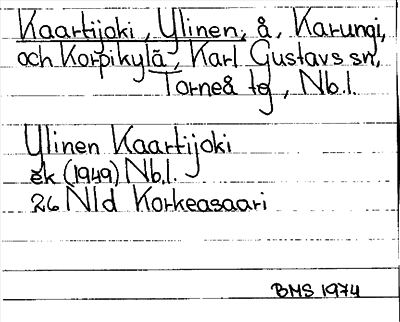 Kaartijoki, Ylinen, å, Karungi,
och Korpikylä, Karl Gustavs sn,
Torneå tg, Nb.l.
Ylinen Kaartijoki
ek (1949) Nb.l.
26 Nld Korkeasaari
BMS 1974